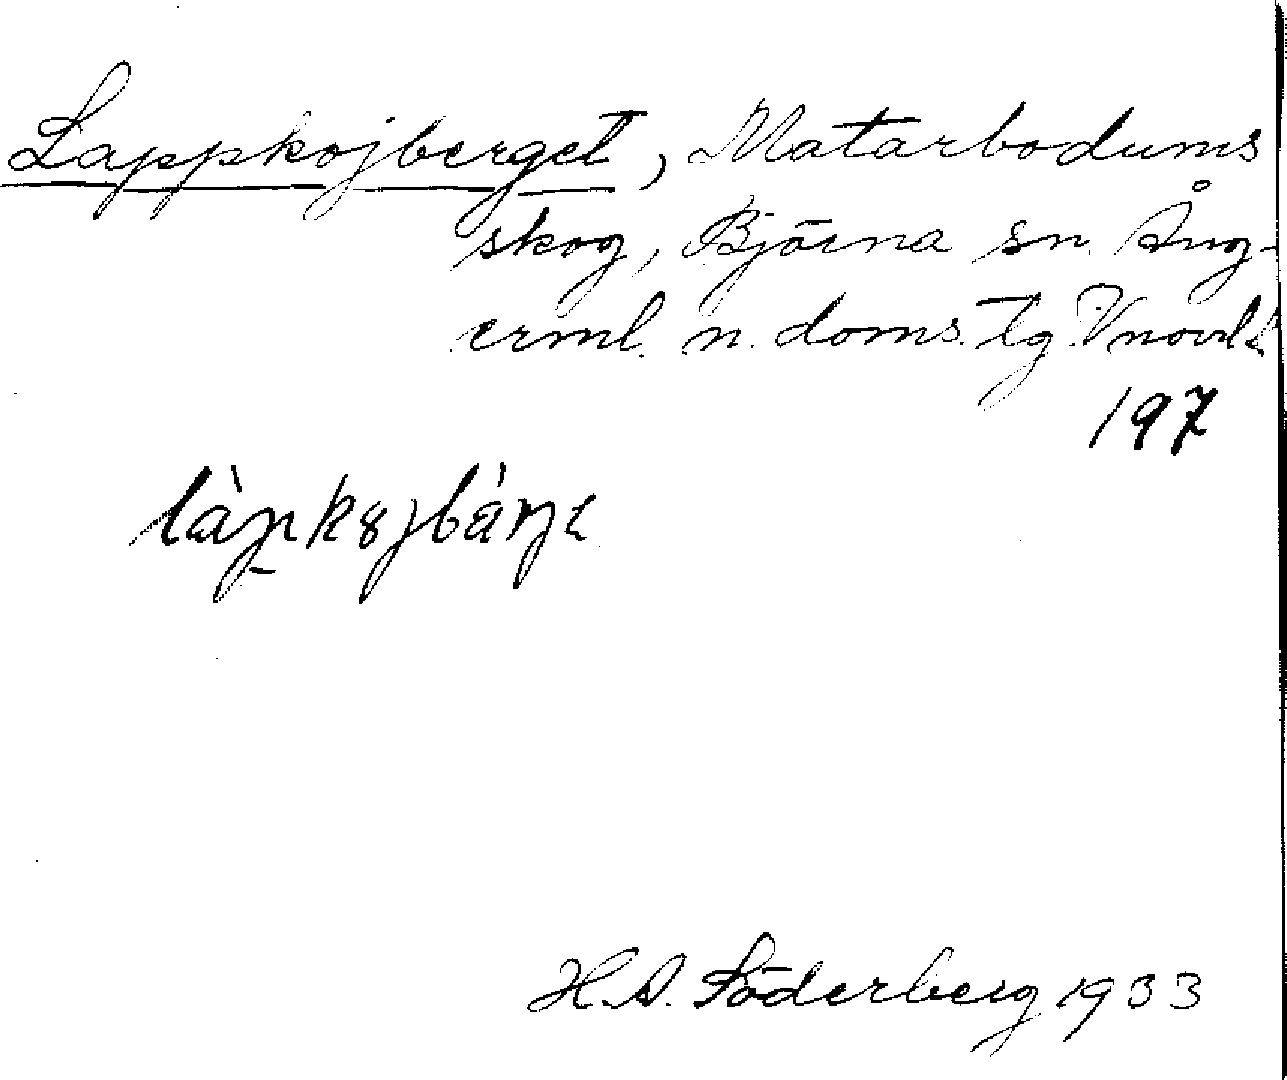 Lappkojberget, Matarbodums
skog, Björna sn. Ång-
erml. n. doms. tg. Vnorrl.
197
H. A. Söderberg 1933